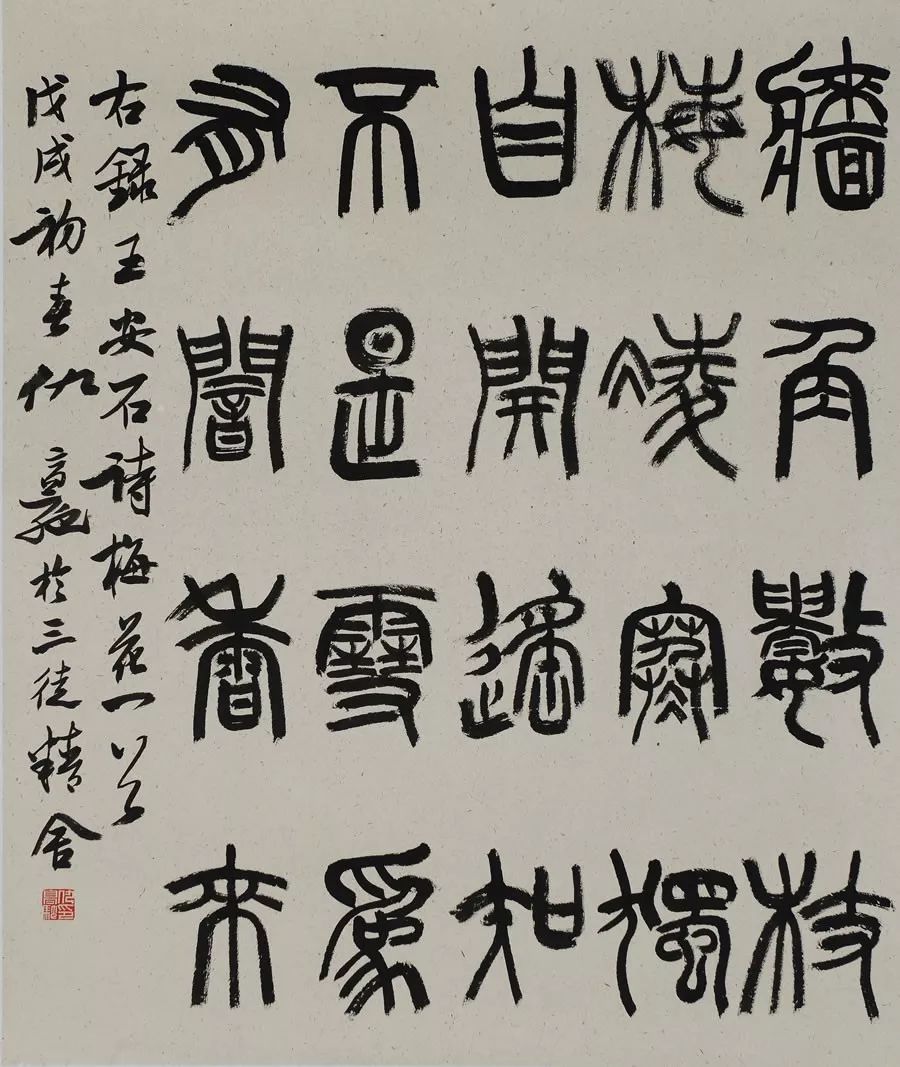 牆角數枝
梅凌寒獨
自開遙知
不是雪爲
有闇香來
右錄王安石詩梅花一首
戊戌初春仇高馳於三徒精舍